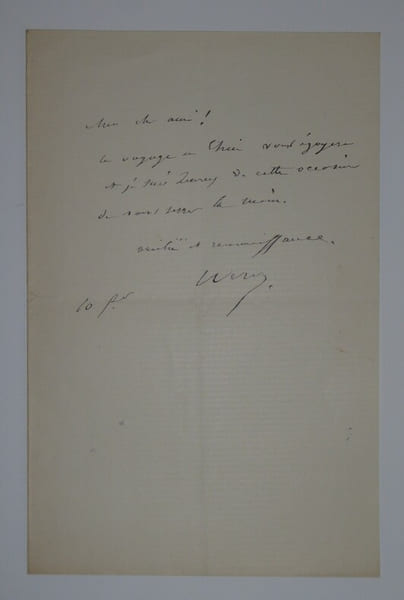 Mon ch ami!
le voyage en Chine vous égayera
et je suis heureux de cette occasion
de vous serrer la main.
amitié et reconnaissance.
10 f.